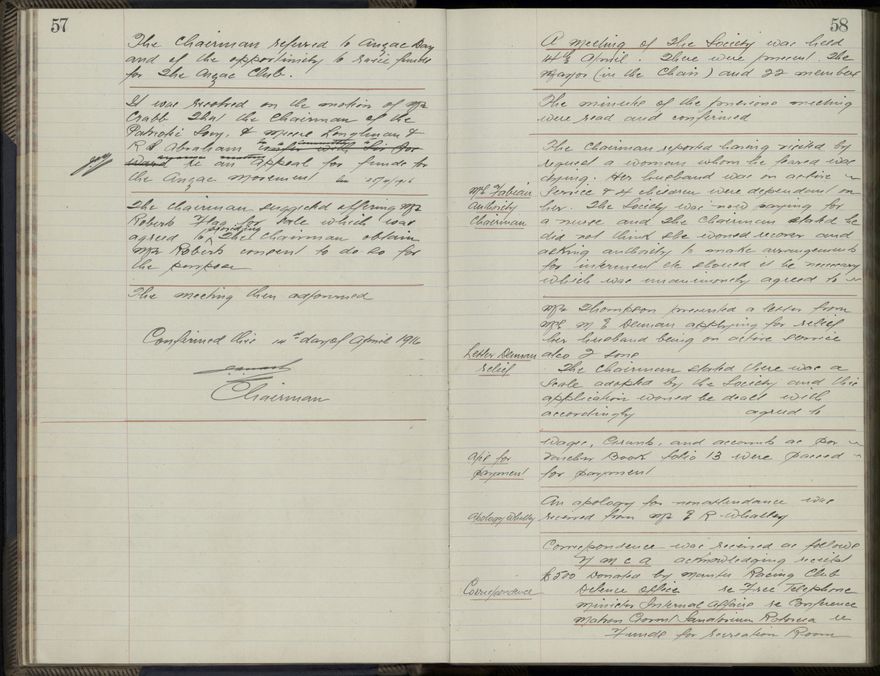 57
The Chairman referred to Anzac Day
and of the opportunity to raise funds
for The Anzac Club.
It was resolved on the motion of Mr
Crabb That the Chairman of the
Patriotic Socy, & Messrs Longhman &
R S Abraham
re an appeal for funds to
the Anzac movement
The Chairman suggested offering Mr
Roberts Flag for sale which was
agreed to providing The Chairman obtain
Mr Roberts consent to do so for
the purpose
The meeting then adjourned
Confirmed this 14th day of April 1916
Chairman
58
A meeting of The Society was held
14th April. There were present The
Mayor (in the Chair) and 22 members
The minutes of the previous meeting
were read and confirmed
The Chairman reported having visited by
request a woman whom he feared was
dying. Her husband was on active
Mrs Fabian
Authority
Chairman
Service & 4 children were dependant on
her. The Society was now paying for
a nurse and the Chairman stated he
did not think she would recover and
asking authority to make arrangements
for interment etc should it be necessary
which was unanimously agreed to
Mr Thompson presented a letter from
Mrs M E Denman applying for relief
her husband being on active service
Letter Denman
relief
also 2 sons
The Chairman stated there was a
Scale adopted by the Society and this
application would be dealt with
accordingly agreed to
Wages, Grants, and accounts as per
Voucher Book folio 13 were passed
for payment
payment
An apology for nonattendance was
Apology Whalley
received from Mr E R Whalley
Correspondence was received as follows
Y M C A acknowledging receipt
£500 Donated by Manawatu Racing Club
Correspondence
Defence Office re Free Telephone
Minister Internal Affairs re Conference
Matron Govmt Sanatorium Rotorua re
Funds for Recreation Room